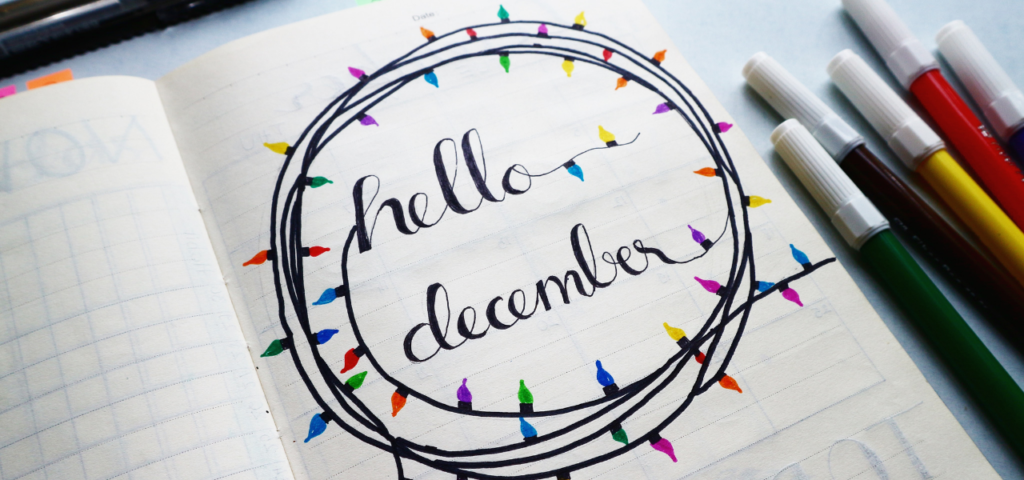 Date
hello
december